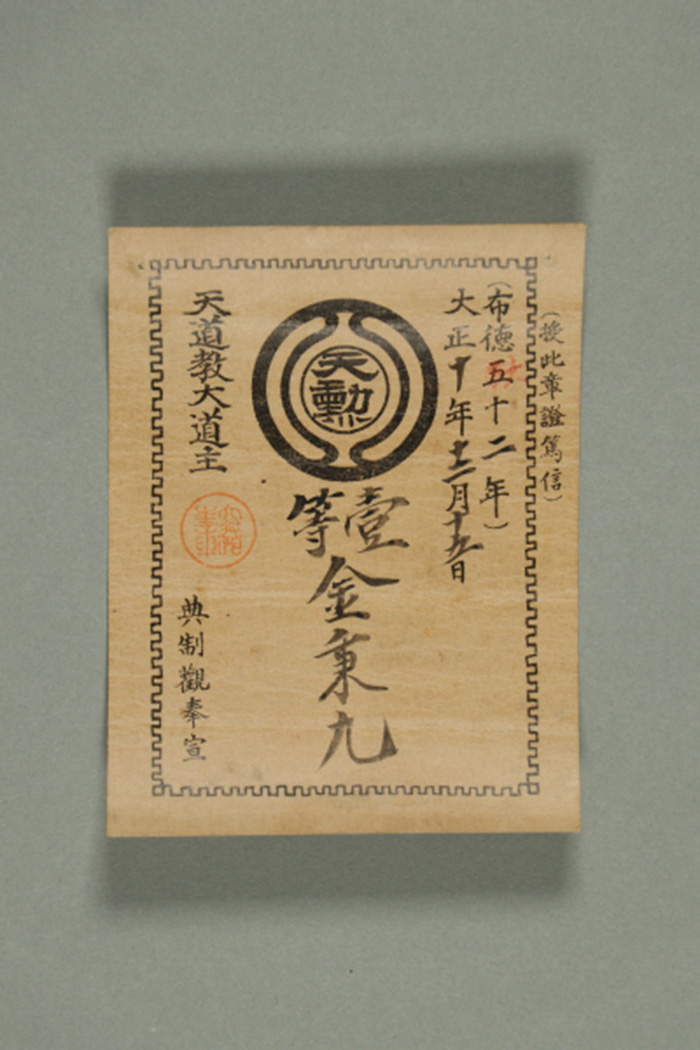 (授此章證篤信)
(布德五十二年)
大正十年十二月十五日
天勳
壹等
金秉九
天道教大道主
典制觀奉宣